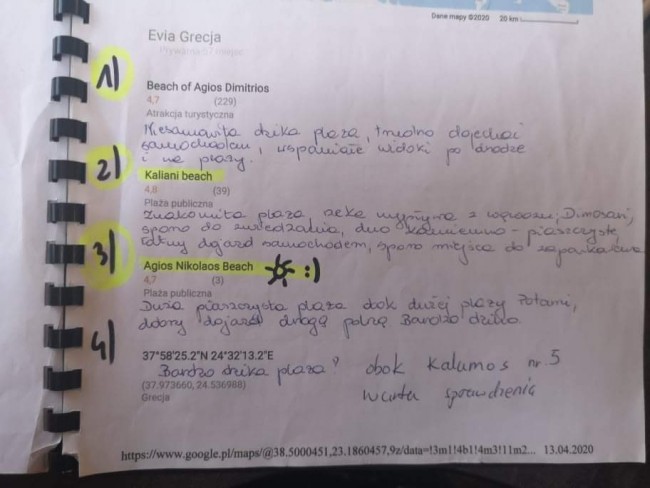 Dane mapy ©2020 20 km
Evia Grecja
Prywatna 57 miejsc
1)
Beach of Agios Dimitrios
4,7 (229)
Atrakcja turystyczna
Niesamowita dzika plaża, trudno dojechać
samochodem, wspaniałe widoki po drodze
i na plaży.
2)
Kaliani beach
4,8 (39)
Plaża publiczna
Znakomita plaża rzeka wypływa z wąwozu, Dimosari,
sporo do zwiedzania, dno kamienno - piaszczyste,
łatwy dojazd samochodem, sporo miejsca do zaparkowania
3)
Agios Nikolaos Beach :)
4,7 (3)
Plaża publiczna
Duża piaszczysta plaża obok dużej plaży Potami,
dobry dojazd drogą polną Bardzo dzika
4)
37°58'25.2"N 24°32'13.2"E
Bardzo dzika plaża? obok Kalamos nr 5
(37.973660, 24.536988)
warta sprawdzenia
Grecja
https://www.google.pl/maps/@38.5000451,23.1860457,9z/data=!3m1!4b1!4m3!11m2... 13.04.2020